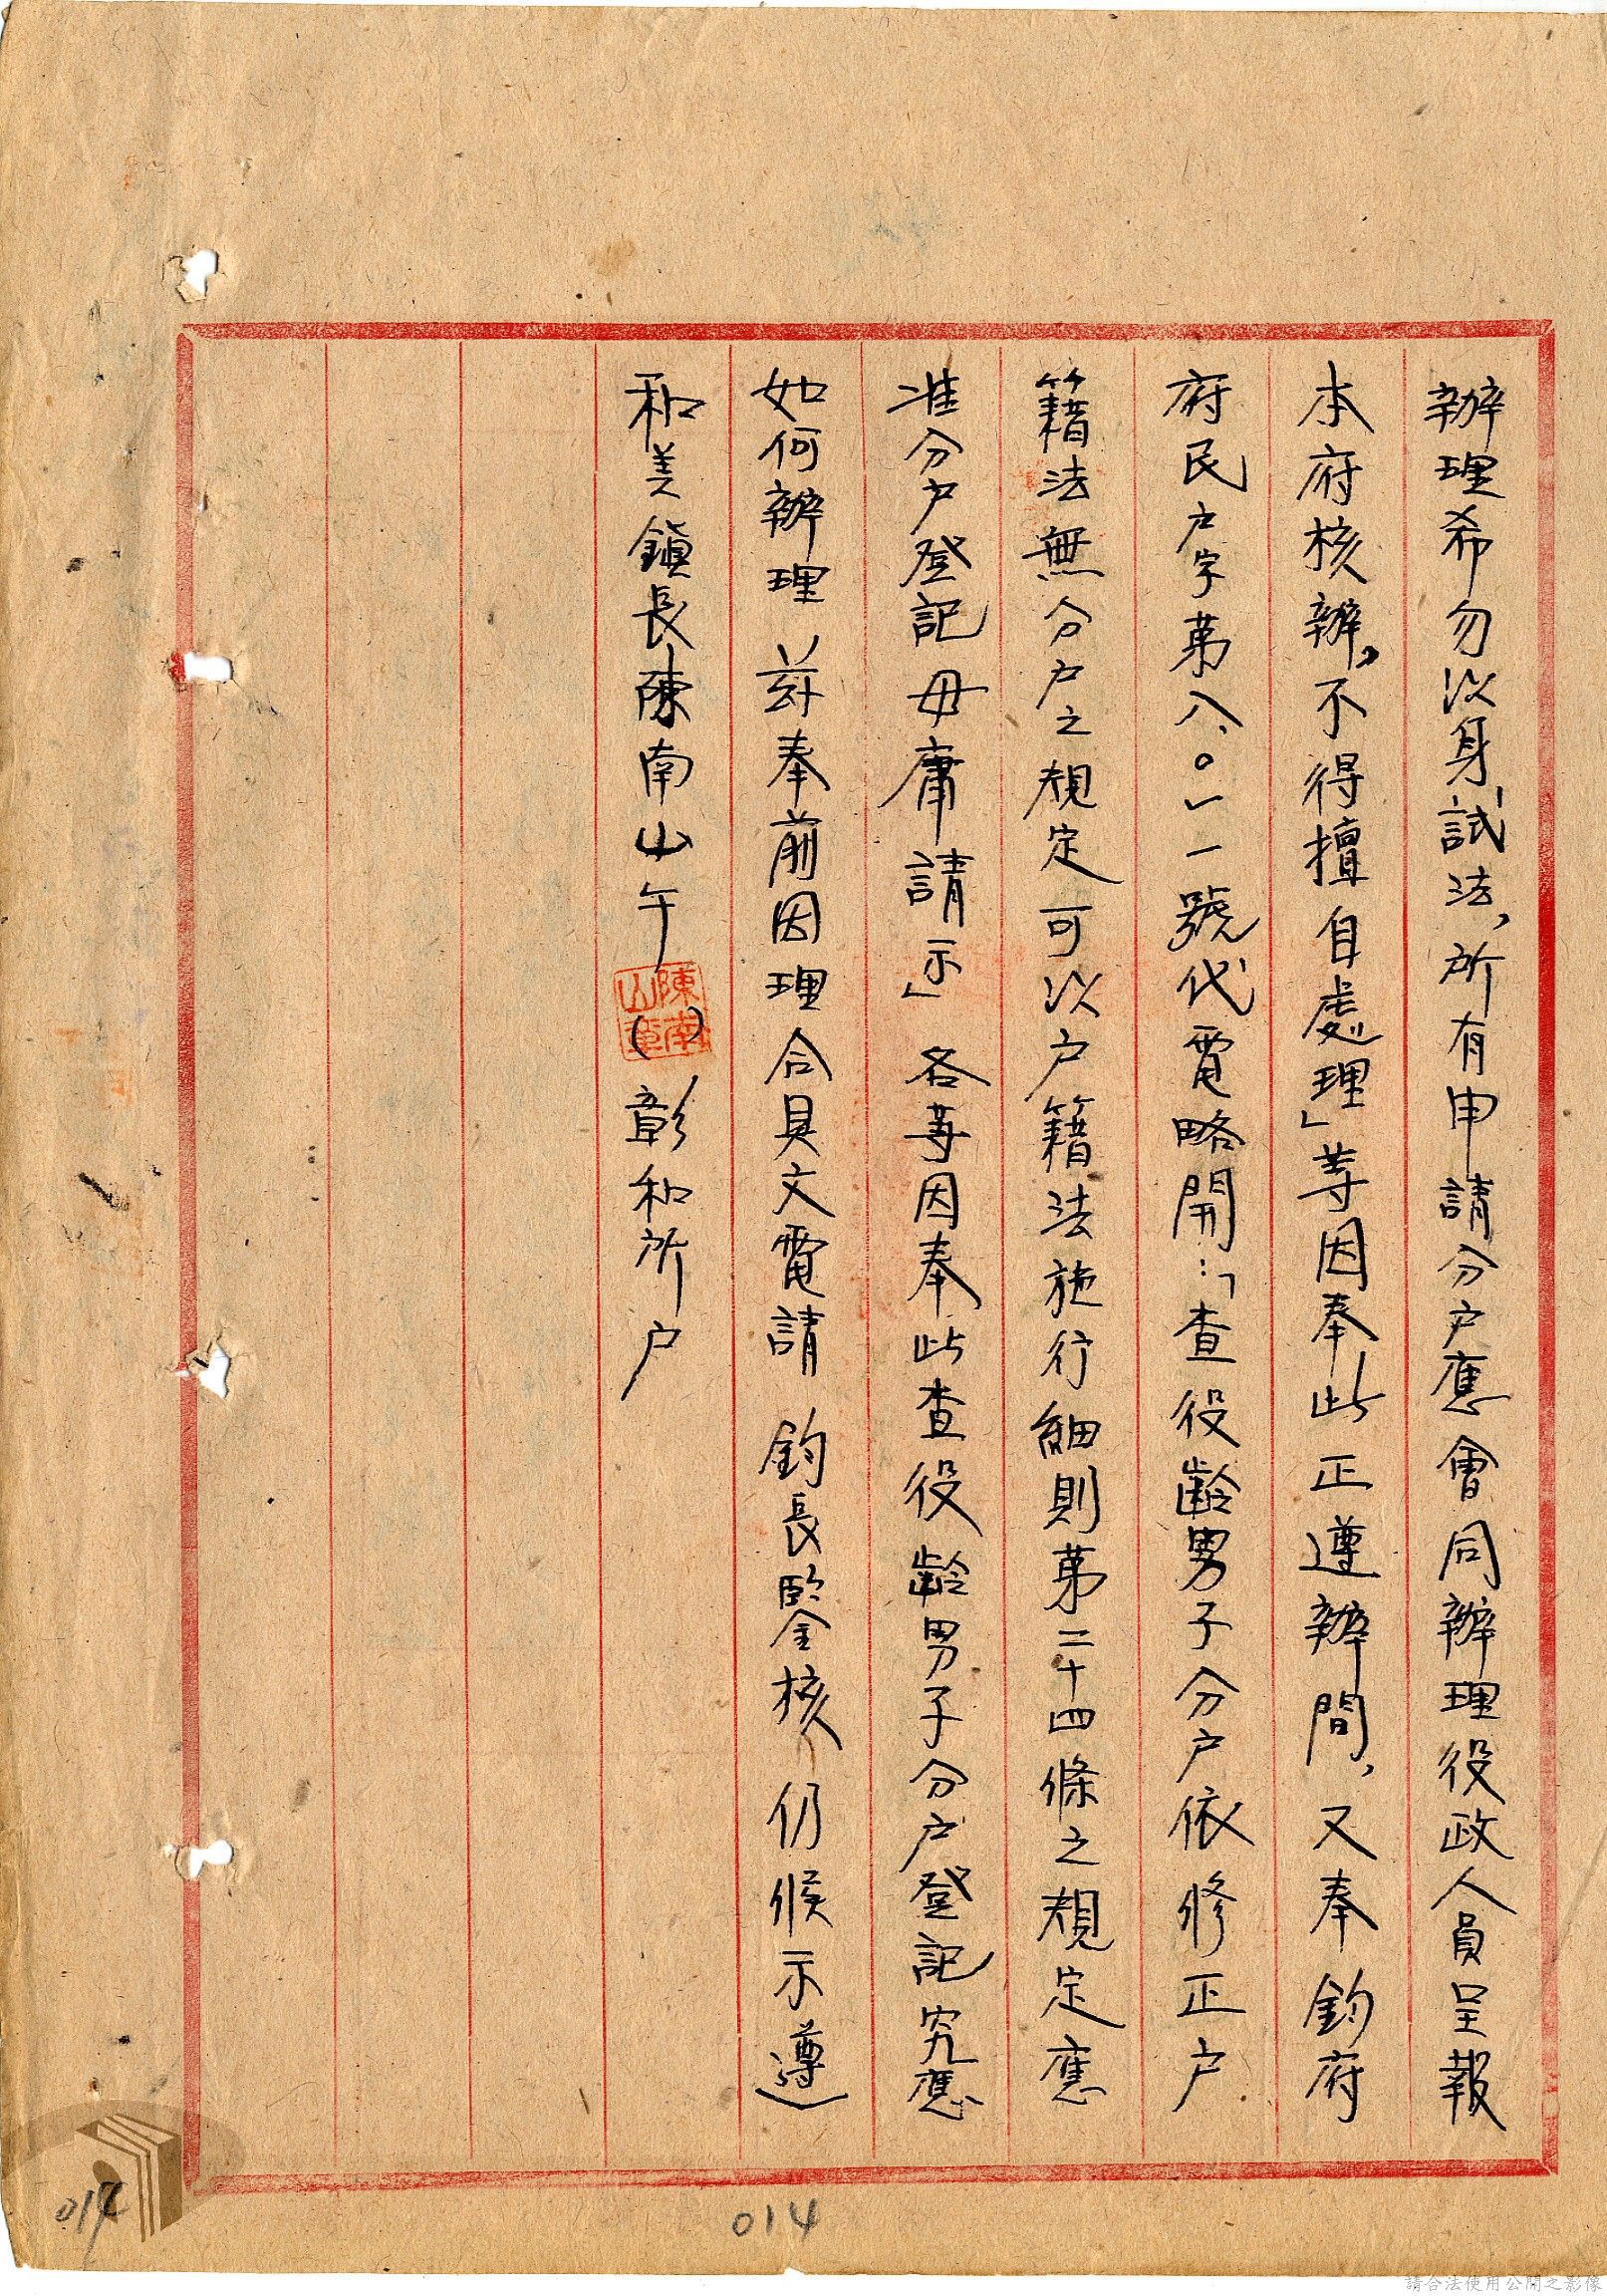 辦理希勿以身試法，所有申請分户應會同辦理役政人員呈報
本府核辦，不得擅自處理」等因奉此正遵辦間，又奉鈞府
府民户字第八〇一一號代電略開：「查役齡男子分户依修正户
籍法無分户之規定可以户籍法施行細則第二十四條之規定應
准分户登記毋庸請示」各等因奉此查役齡男子分户登記究應
如何辦理茲奉前因理合具文電請 鈞長鑒核 仍候示遵
和美鎮長陳南山午（）彰和所户
陳南山章
014
014
請合法使用公開之影像